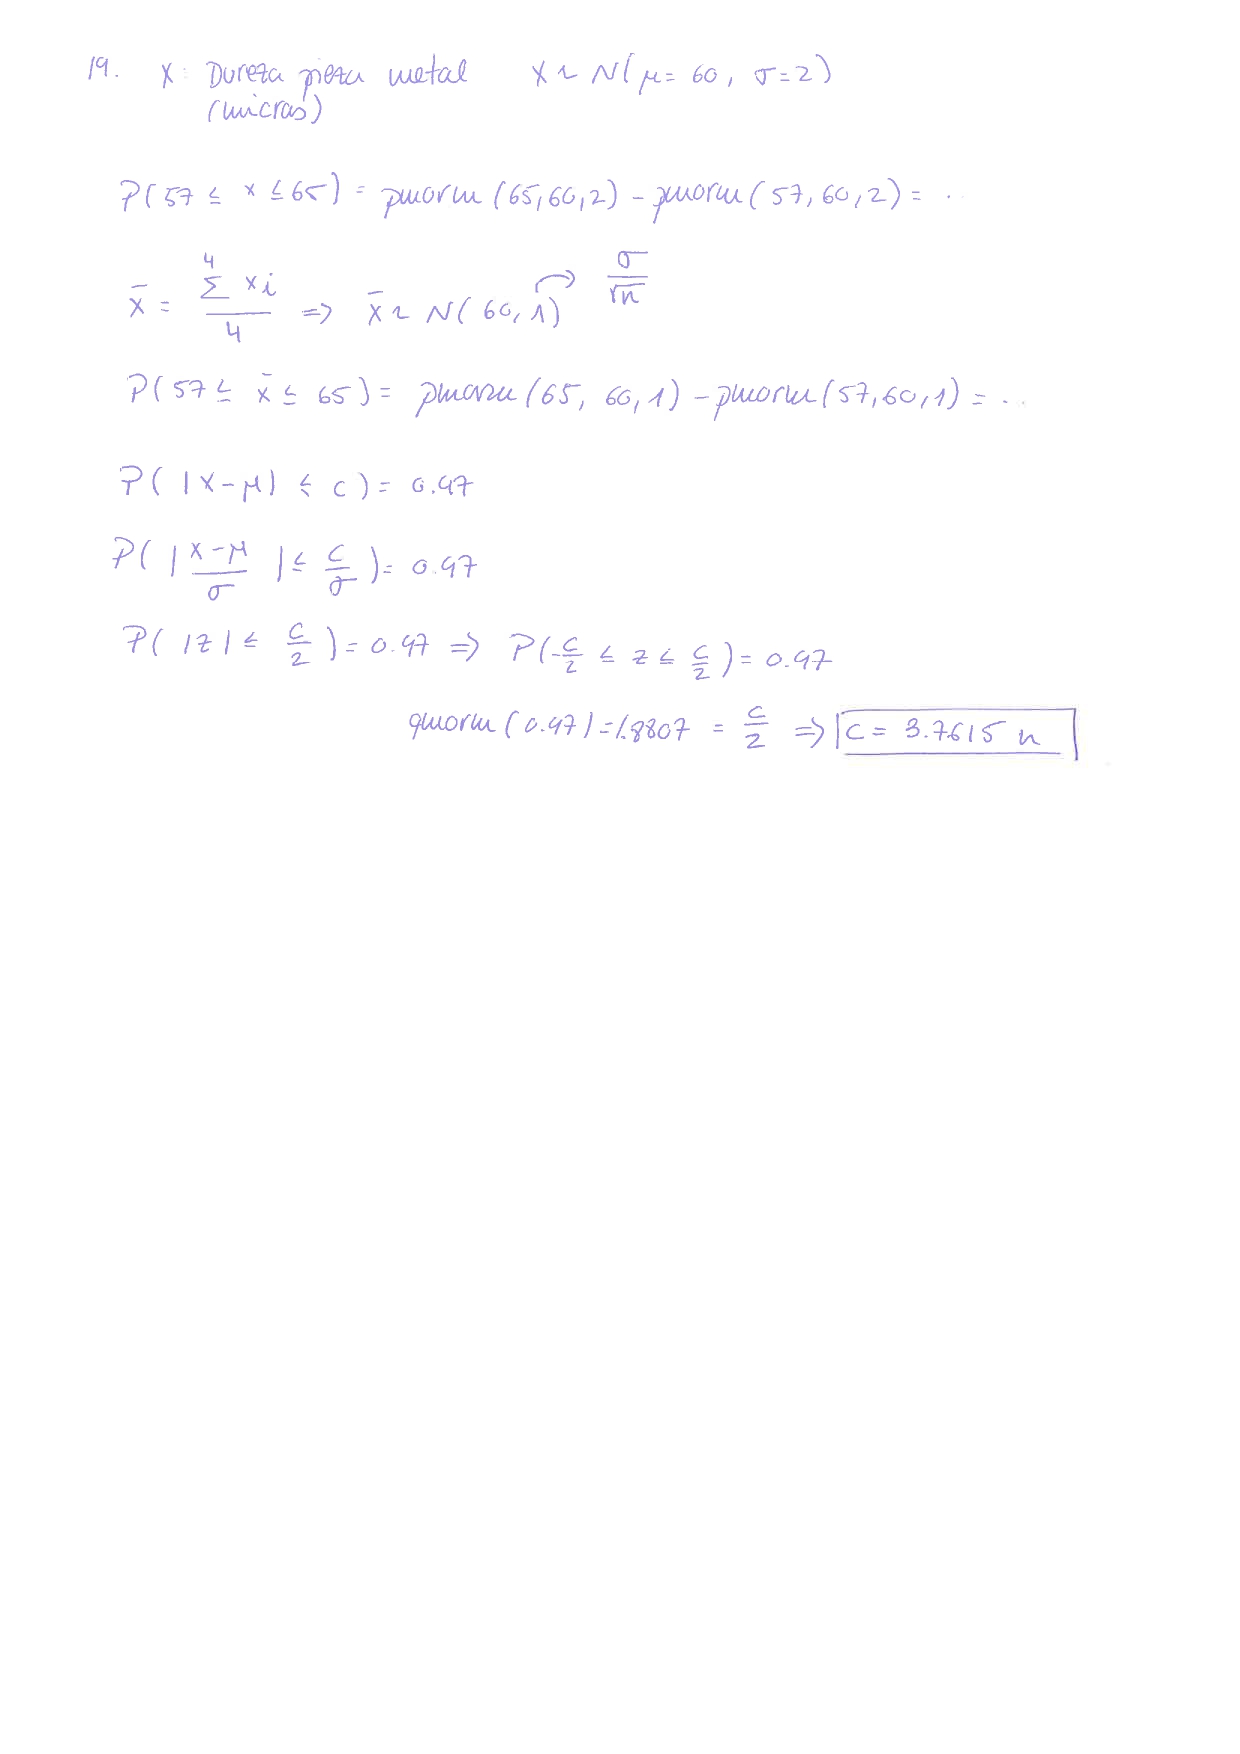 19. X: Dureza pieza metal X ~ N(μ = 60, σ = 2)
(micras)
P(57 ≤ x ≤ 65) = pnorm (65,60,2) - pnorm (57,60,2) = ..
x̄ = 4 Σ xi / 4 ⇒ x̄ ~ N(60, 1) σ/√n
P(57 ≤ x̄ ≤ 65) = pnorm (65, 60, 1) - pnorm (57,60,1) = ...
P( |X-μ| ≤ c) = 0.97
P( | X-μ / σ | ≤ c/σ ) = 0.97
P( |z| ≤ c/2 ) = 0.97 ⇒ P(-c/2 ≤ z ≤ c/2) = 0.97
qnorm (0.97) = 1.8807 = c/2 ⇒ c = 3.7615